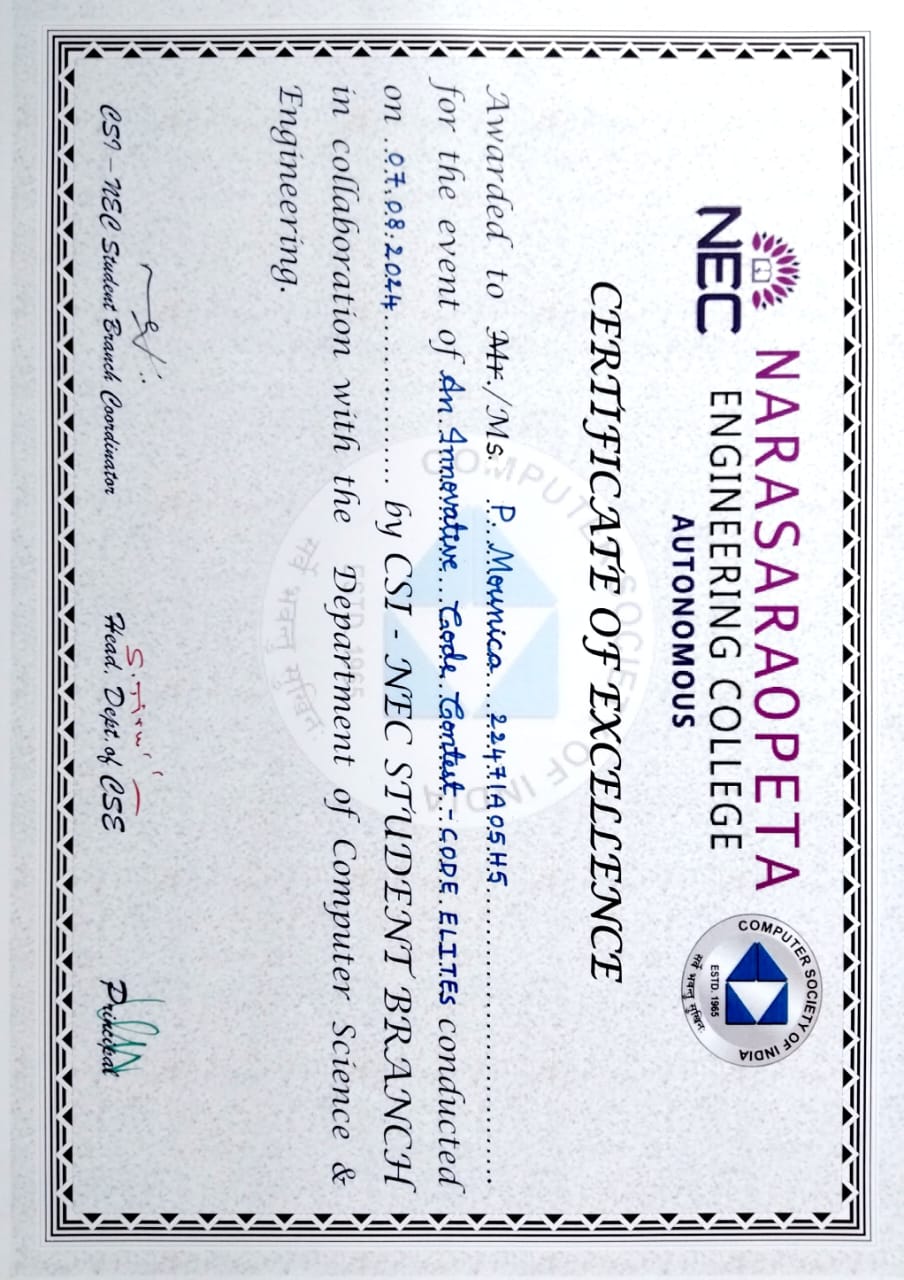 NARASARAOPETA
NEC
ENGINEERING COLLEGE
AUTONOMOUS
COMPUTER SOCIETY OF INDIA
ESTD. 1965
सर्वे भवन्तु सुखिनः
CERTIFICATE OF EXCELLENCE
Awarded to Mr./Ms. P. Mounica 22471A05H5
for the event of An Innovative Code Contest - CODE ELITES conducted
on 07.08.2024 by CSI - NEC STUDENT BRANCH
in collaboration with the Department of Computer Science &
Engineering.
COMPUTER SOCIETY OF INDIA
ESTD. 1965
सर्वे भवन्तु सुखिनः
CSI - NEC Student Branch Coordinator
Head, Dept. of CSE
Principal